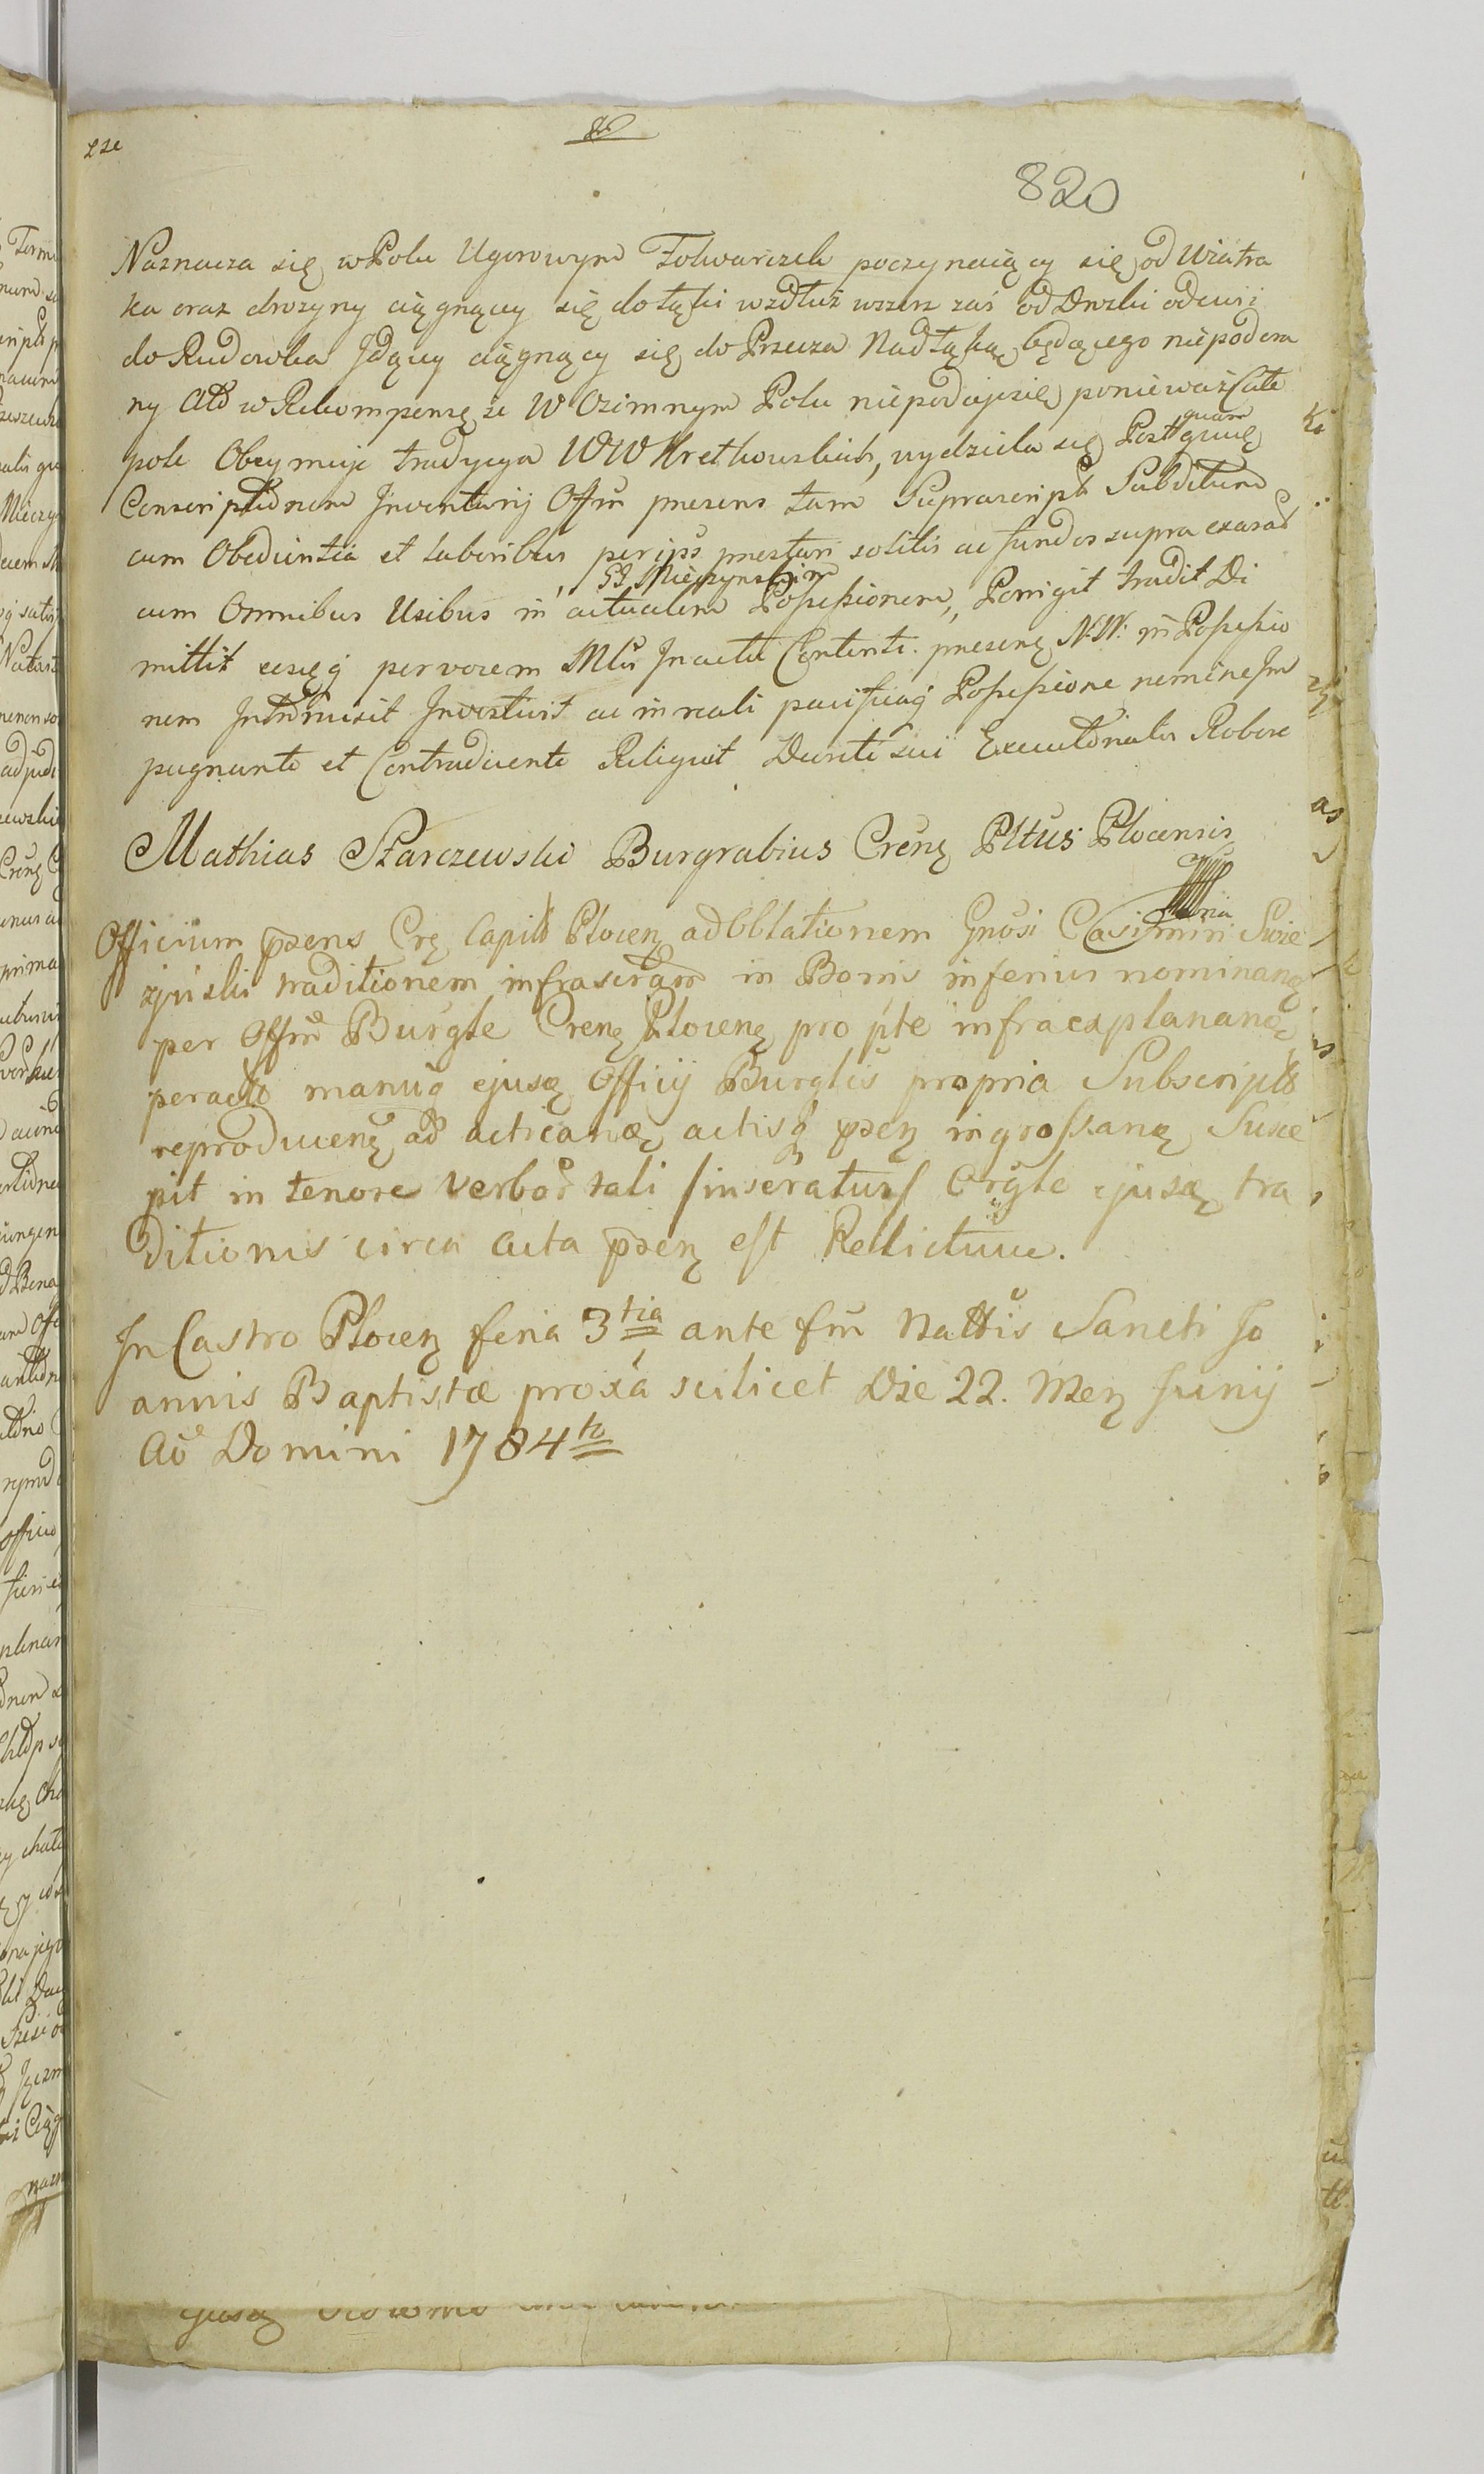 820
Naznacza się w Polu Ugorowym Folwarczek poczynaiący się od Wiatra
ka oraz drozyny ciągnący się do łąki wzdłuż wszerz zaś od Drozki
do Rudowka Jdący ciągnący się do Nad Łąką będącego niepodora
ny w Rekompensę że W Ozimnym Polu niepodajesię ponieważ całe
pole Obeymuje tradycya WW Krethowskich, wydziela się Post
quam
Conscriptionem Jnventarij Offm presens tam Suprascript Subditum
cum Obedientia et laboribus per ips prestari solitis ac fundos supra exarat
G Mieczynskim
cum Omnibus Usibus in actualem Possessionem, Porrigit tradit Di
mittit per vocem Mlis Jn actu Contenti. presen N. W. in Possessio
nem Jntromisit Jnvestivit ac in reali pacificaq Possessione nemine Jm
pugnante et Contradicente Reliquit Decreti sui Executionalis Robore
Mathias Starczewski Burgrabius Cren Pltus Plocensis
mpria
Officium psens Cre Capit Plocen ad Oblationem Gnosi Casimiri
traditionem infrascrptm in Bonis inferius nominan
per Offm Burgle Cren Plocen pro pte infraexplanan
peractam manuq ejusd Officij Burglis propria Subscript
reproducen ad actican actisq psen ingrossand Susce
pit in tenore verbor tali /inseratur/ Orgle ejusd tra
ditionis circa acta psen est Relictum.
Jn Castro Plocen feria 3tia ante fm Nattis Sancti Jo
annis Baptistæ proxa scilicet Die 22. Men Junij
Ao Domini 1784to